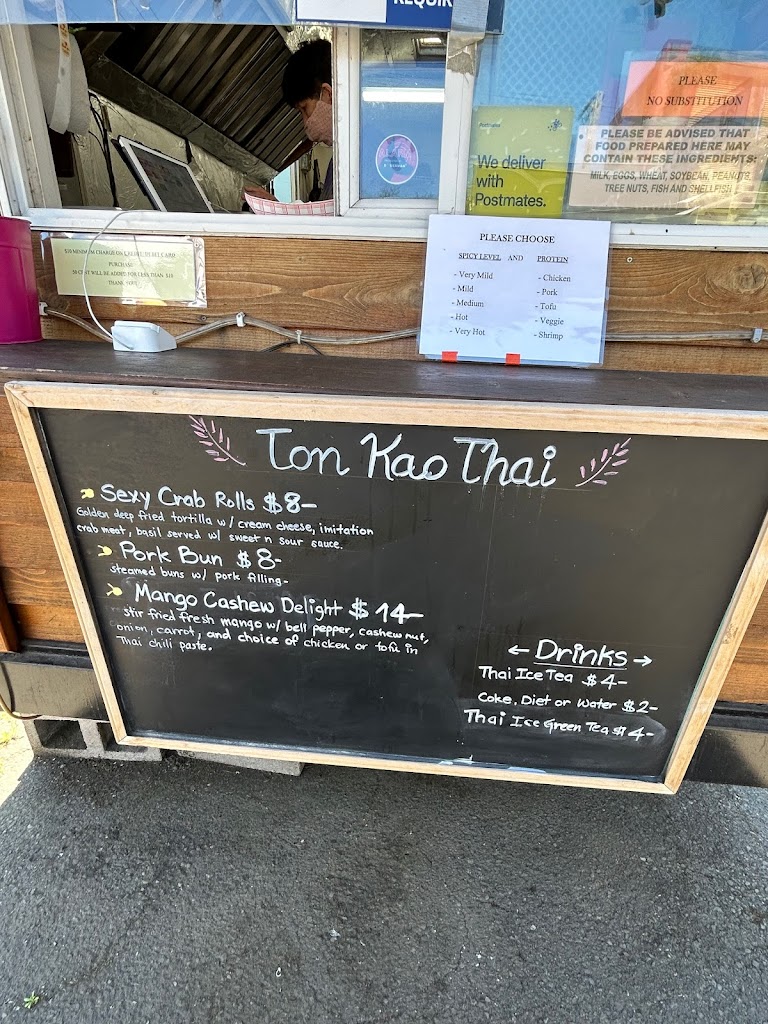 REQUIR
PLEASE
NO SUBSTITUTION
PLEASE BE ADVISED THAT
FOOD PREPARED HERE MAY
CONTAIN THESE INGREDIENTS:
MILK, EGGS, WHEAT, SOYBEAN, PEANUTS,
TREE NUTS, FISH AND SHELLFISH
Postmates
We deliver
with
Postmates.
$10 MINIMUM CHARGE ON CREDIT/DEBIT CARD
PURCHASE
50 CENT WILL BE ADDED FOR LESS THAN $10
THANK YOU!
PLEASE CHOOSE
SPICY LEVEL AND PROTEIN
- Very Mild - Chicken
- Mild - Pork
- Medium - Tofu
- Hot - Veggie
- Very Hot - Shrimp
Ton Kao Thai
Sexy Crab Rolls $8-
Golden deep fried tortilla w/ cream cheese, imitation
crab meat, basil served w/ sweet n sour sauce.
Pork Bun $8-
steamed buns w/ pork filling-
Mango Cashew Delight $14-
stir fried fresh mango w/ bell pepper, cashew nut,
onion, carrot, and choice of chicken or tofu in
Thai chili paste.
← Drinks →
Thai Ice Tea $4-
Coke, Diet or Water $2-
Thai Ice Green Tea $4-